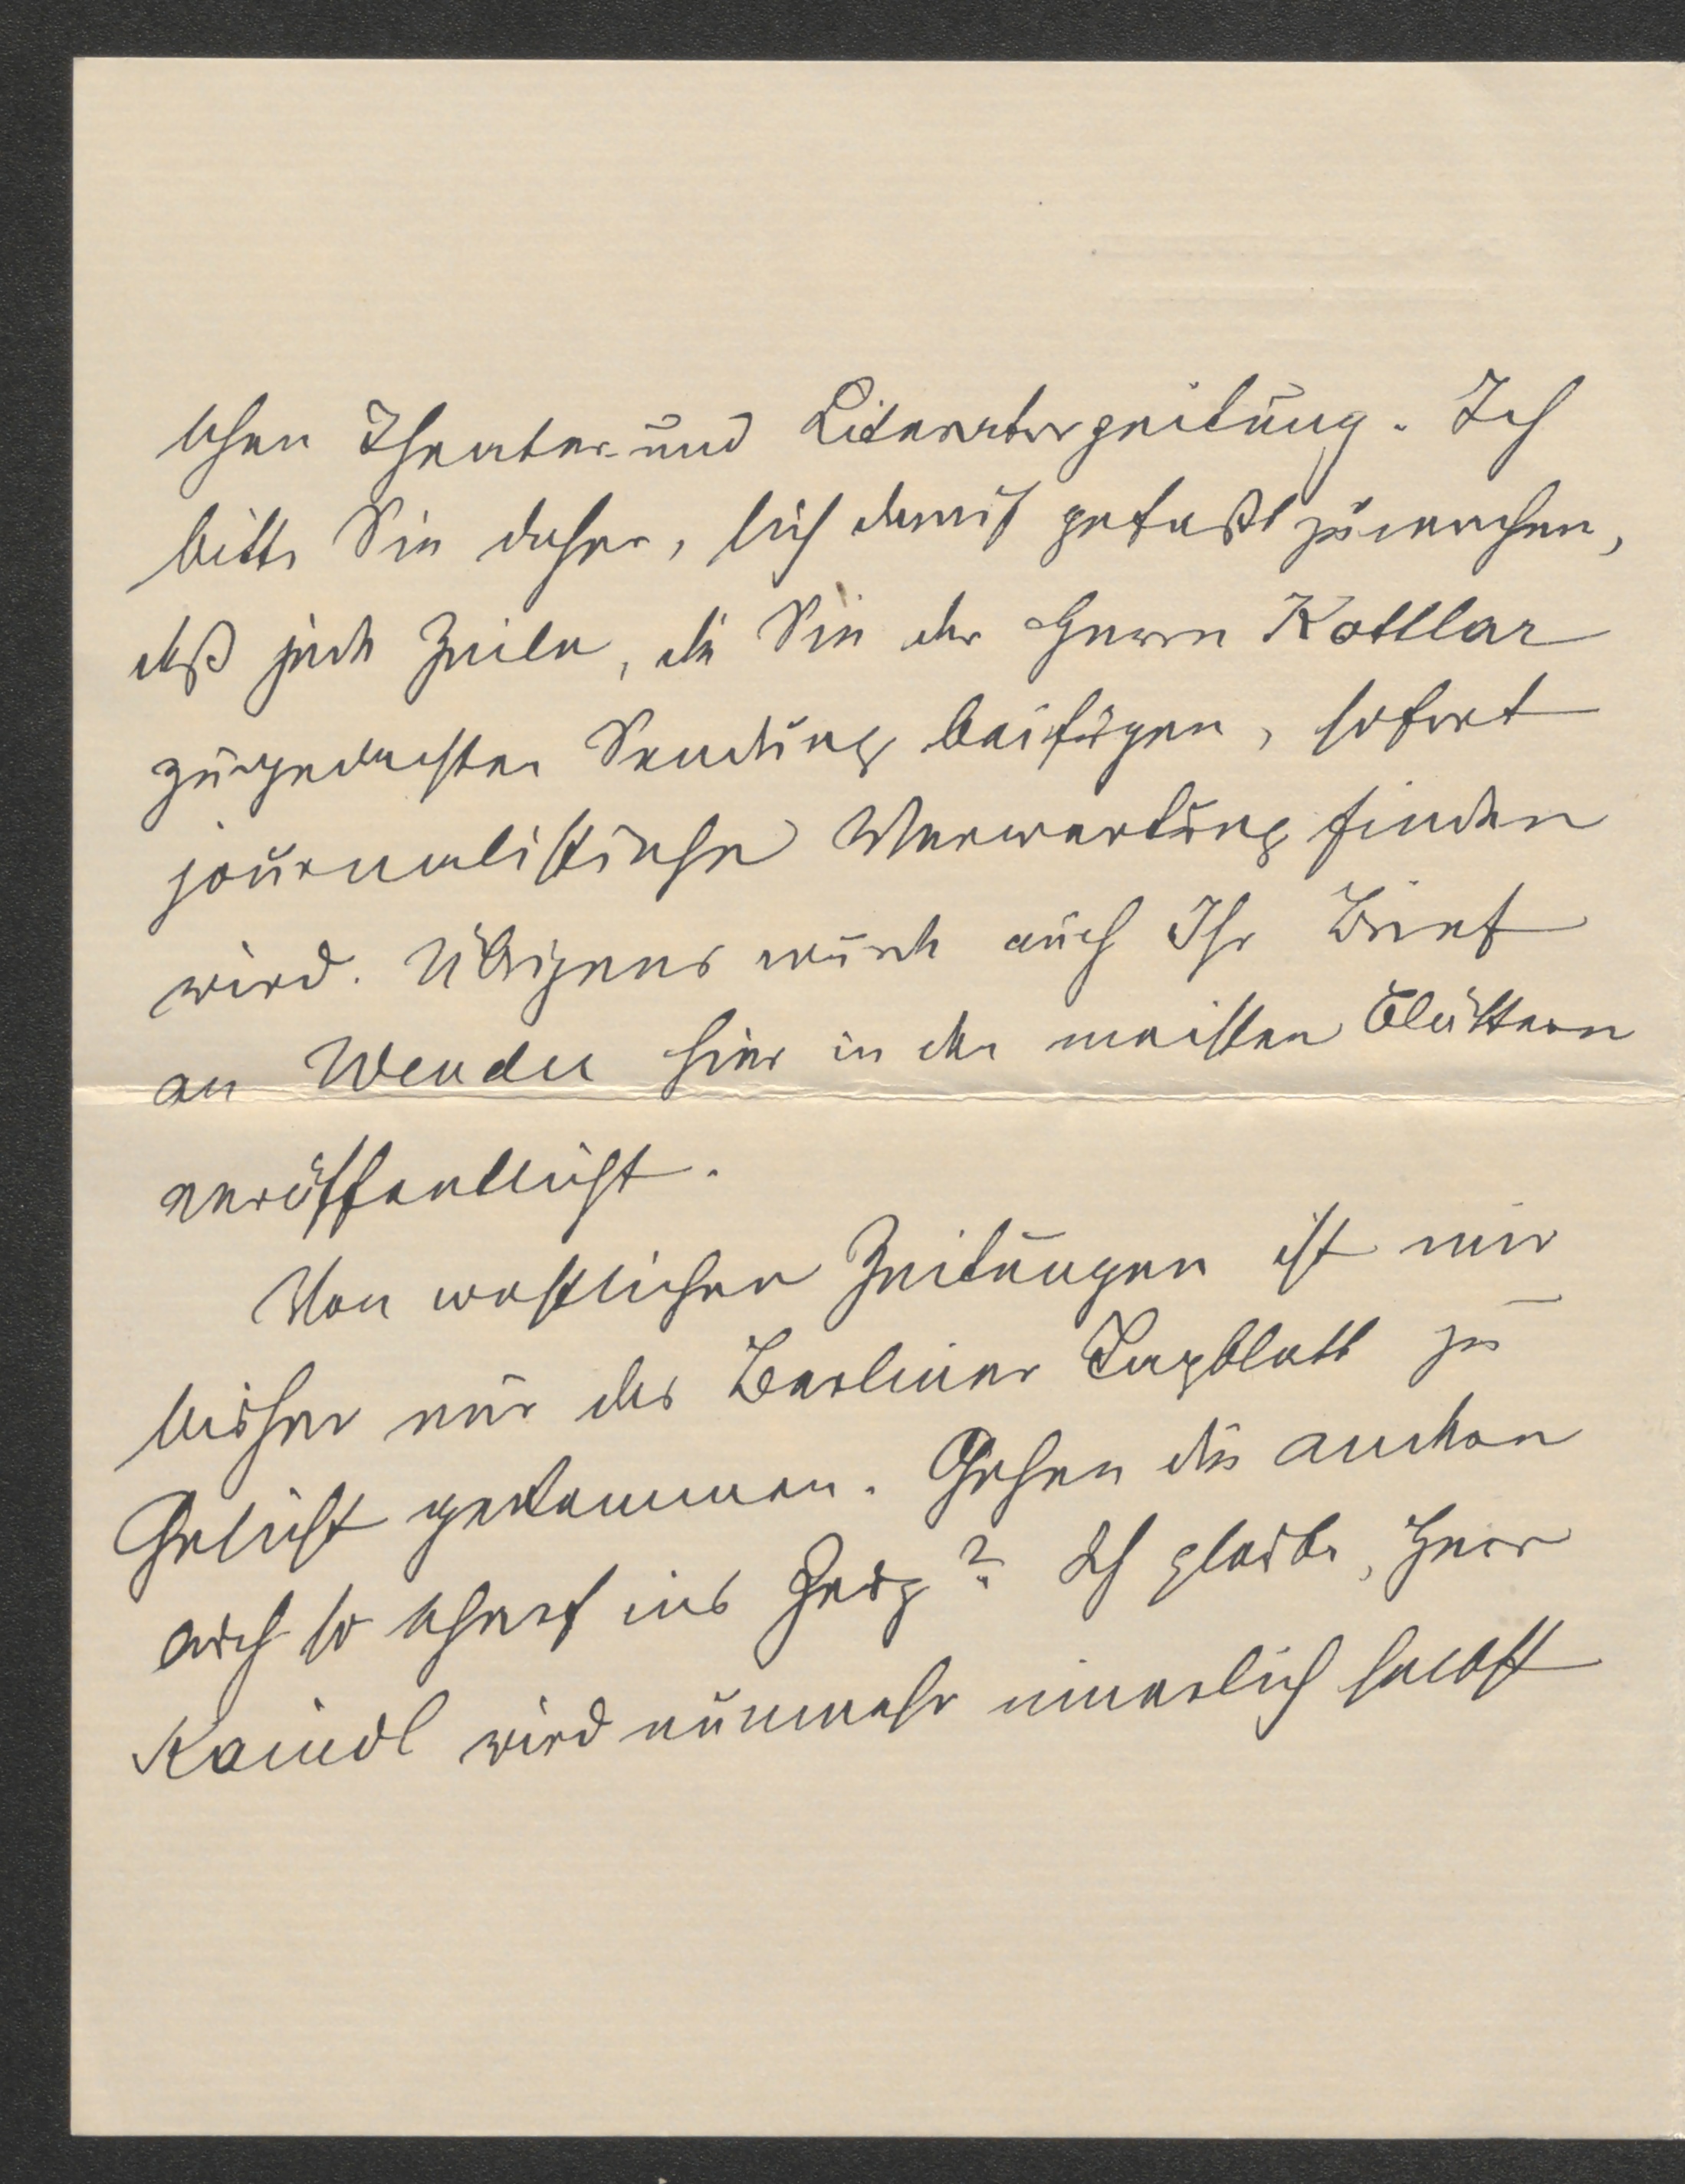 schen Theater- und Literaturzeitung. Ich
bitte Sie daher, sich damit gefaßt zu machen,
daß jede Zeile, die Sie der Herrn Kottlar
zugedachten Sendung beifügen, sofort
journalistische Verwertung finden
wird. Übrigens wurde auch Ihr Brief
an hier in den meisten Blättern
veröffentlicht.
Von westlichen Zeitungen ist mir
bisher nur das Berliner Tagblatt zu
Gesicht gekommen. Gehen die anderen
auch so scharf ins Zeug? Ich glaube, Herr
Kaindl wird nunmehr innerlich selbst